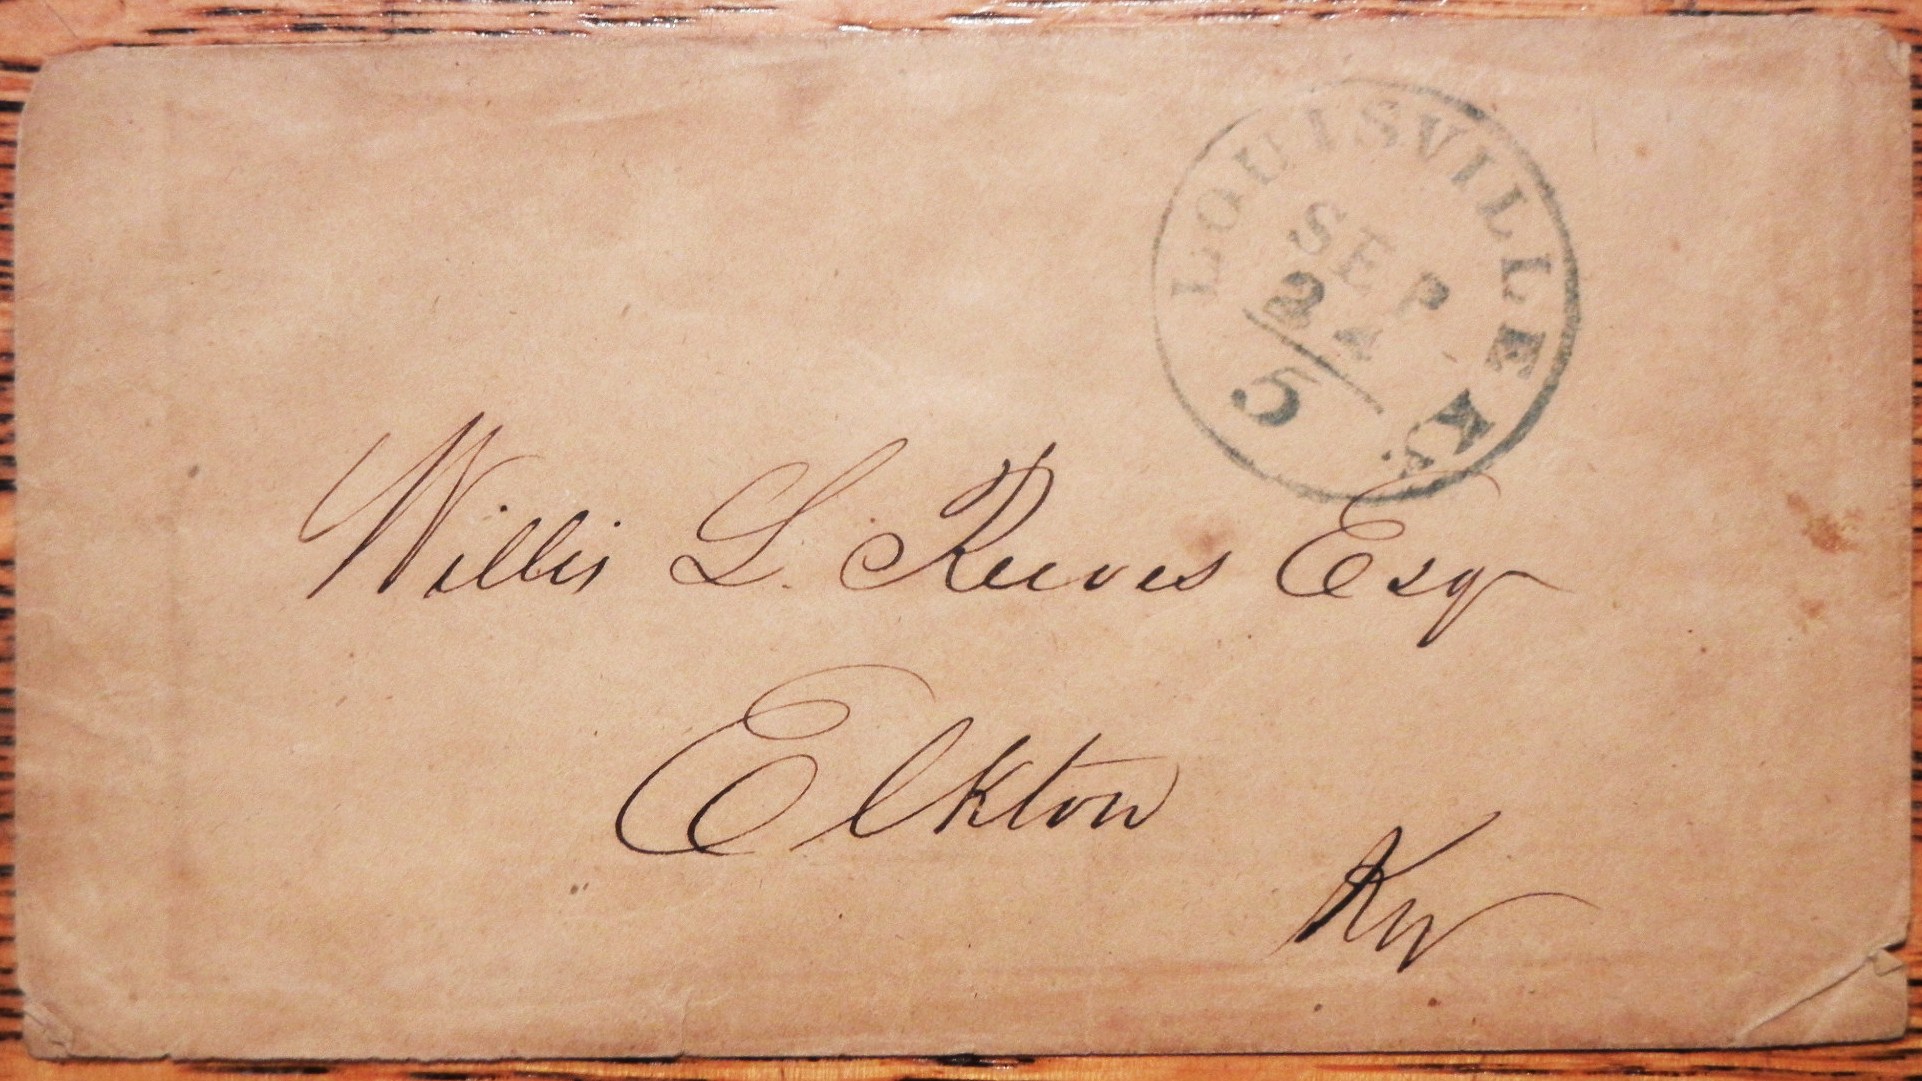 LOUISVILLE KY.
SEP
24
5
Willis L. Reeves Esq
Elkton
Ky